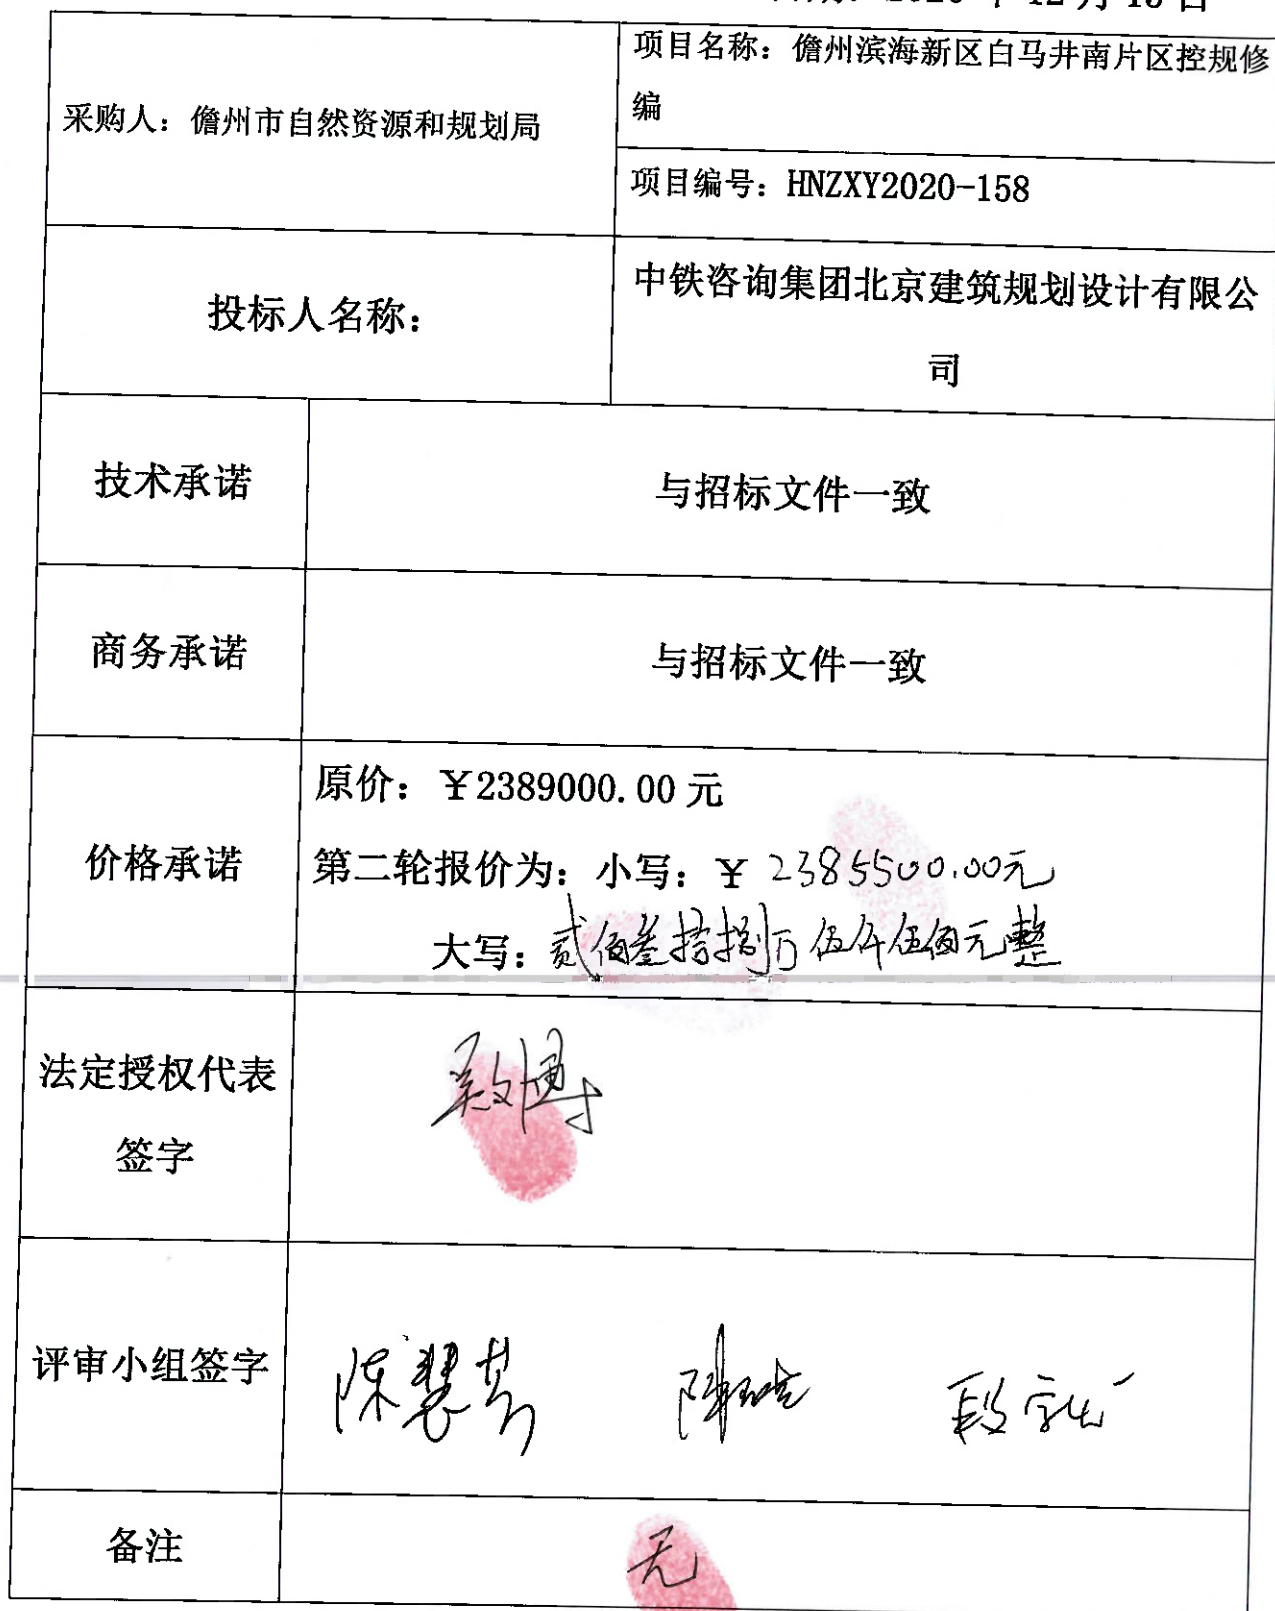 采购人：儋州市自然资源和规划局
项目名称：儋州滨海新区白马井南片区控规修
编
项目编号：HNZXY2020-158
投标人名称：
中铁咨询集团北京建筑规划设计有限公
司
技术承诺
与招标文件一致
商务承诺
与招标文件一致
价格承诺
原价：￥2389000.00 元
第二轮报价为：小写：￥ 2385500.00元
大写：贰佰叁拾捌万伍仟伍佰元整
法定授权代表
签字
评审小组签字
备注
无